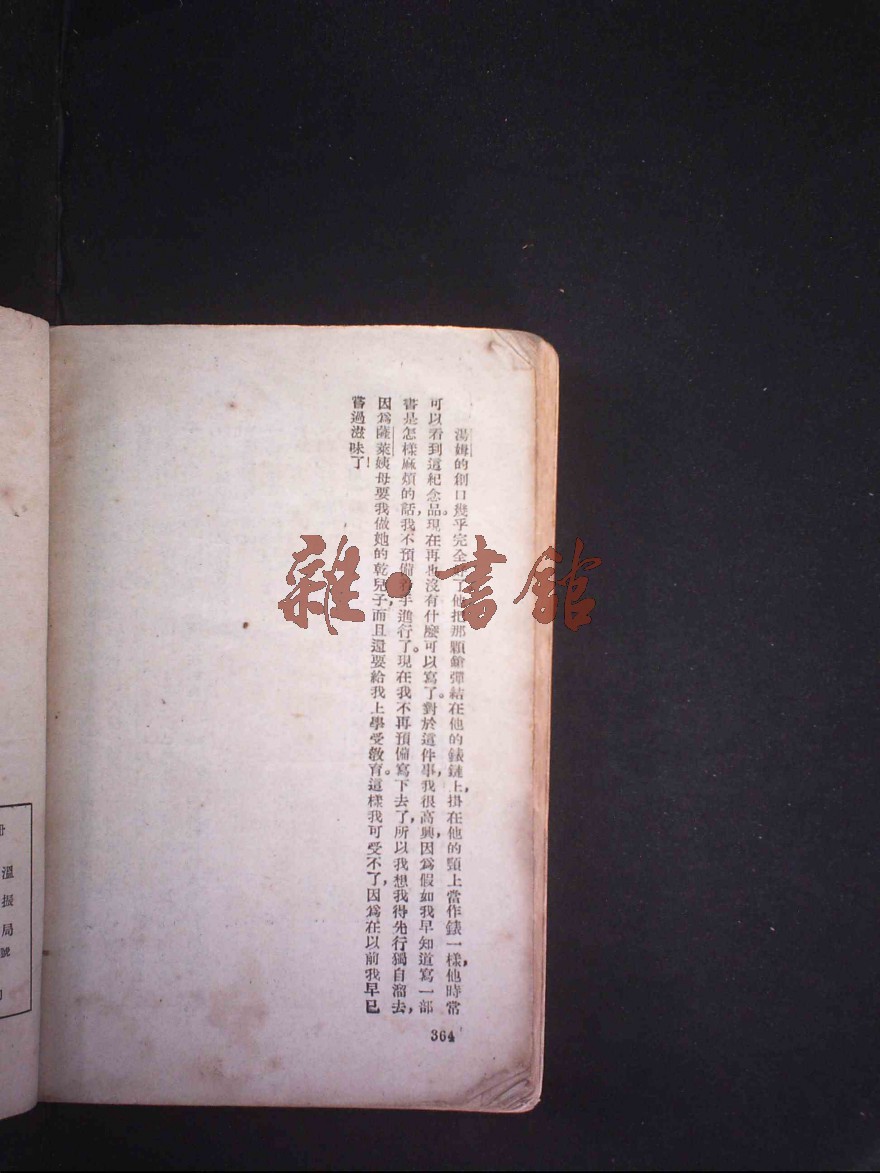 湯姆的創口幾乎完全 了他把那顆鎗彈結在他的錶鏈上，掛在他的頸上當作錶一樣，他時常
可以看到這紀念品。現在再也沒有什麼可以寫了。對於這件事，我很高興，因爲假如我早知道寫一部
書是怎樣麻煩的話，我不預備 手進行了。現在我不再預備寫下去了，所以我想我得先行獨自溜去，
因爲薩萊姨母要我做她的乾兒子，而且還要給我上學受教育。這樣我可受不了，因爲在以前我早已
嘗過滋味了！
364
雜·書館
溫
振
局
號